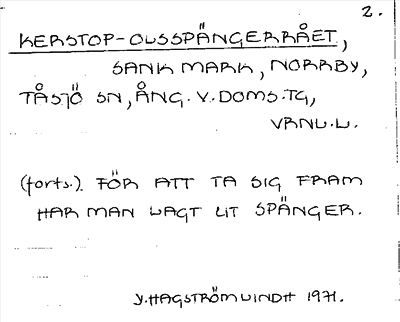 2.
KERSTOP-OLSSPÄNGERRÅET,
SANK MARK, NORRBY,
TÅSJÖ SN, ÅNG. V. DOMS.TG,
VRNL.L.
(forts.). FÖR ATT TA SIG FRAM
HAR MAN LAGT UT SPÄNGER.
Y. HAGSTRÖM LINDH 1971.